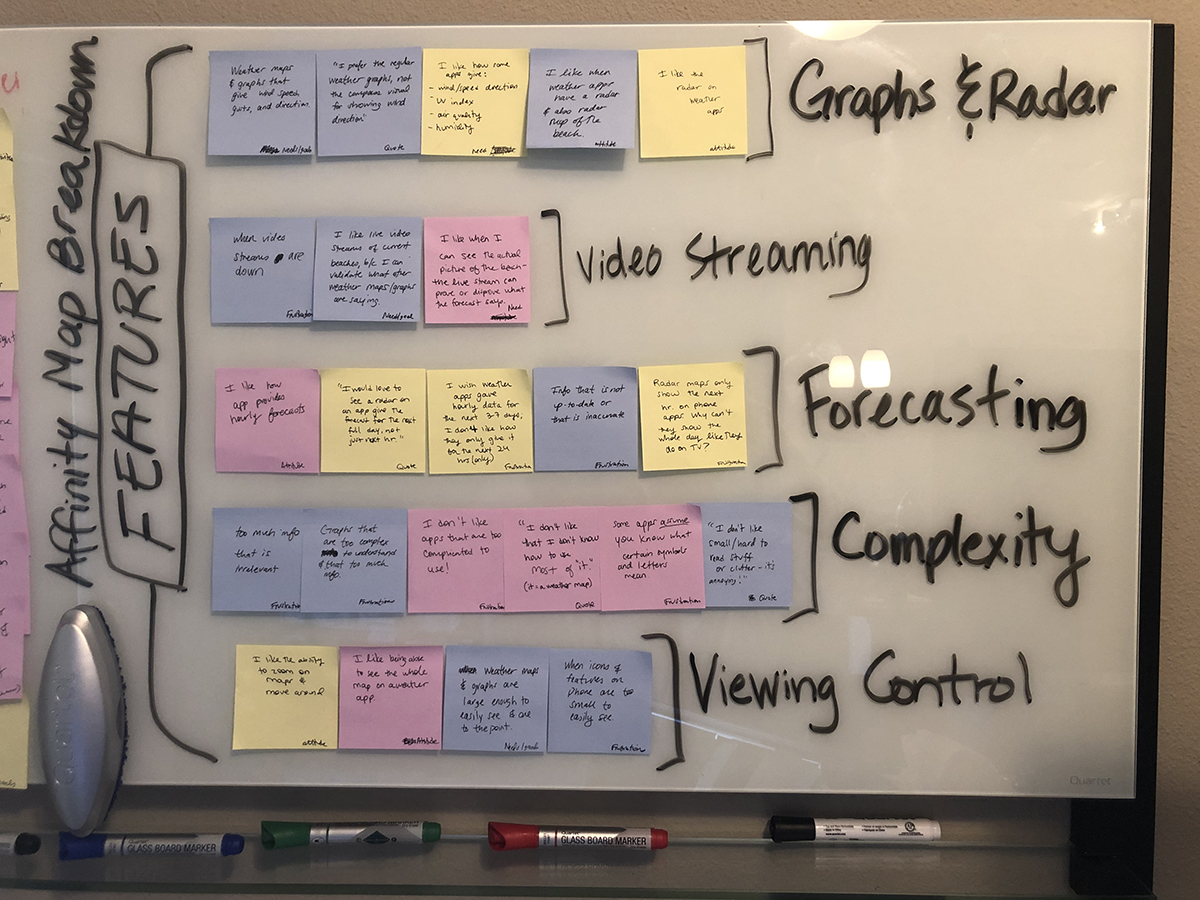 Affinity Map Breakdown
FEATURES
Weather maps
& graphs that
give wind speed,
gusts, and direction.
Needs/goals
"I prefer the regular
weather graphs, not
the compass visual
for showing wind
direction"
Quote
I like how some
apps give:
- wind/speed direction
- UV index
- air quality
- humidity
Need
I like when
weather apps
have a radar
& also radar
map of the
beach.
attitude
I like the
radar on
weather
apps
attitude
Graphs & Radar
When video
streams are
down
Frustration
I like live video
streams of current
beaches, b/c I can
validate what other
weather maps/graphs
are saying.
Need/goal
I like when I
can see the actual
picture of the beach-
the live stream can
prove or disprove what
the forecast says.
Need
Video Streaming
I like how
app provides
hourly forecasts
Attitude
"I would love to
see a radar on
an app give the
forecast for the next
full day, not
just next hr."
Quote
I wish weather
apps gave
hourly data for
the next 3-7 days;
I don't like how
they only give it
for the next 24
hrs (only)
Frustration
Info that is not
up-to-date or
that is inaccurate
Frustration
Radar maps only
show the next
hr. on phone
apps. Why can't
they show the
whole day like they
do on TV?
Frustration
Forecasting
too much info
that is
irrelevant
Frustration
Graphs that
are too complex
to understand
& that too much
info.
Frustration
I don't like
apps that are too
complicated to
use!
Frustration
"I don't like
that I don't know
how to use
most of it."
(it = a weather map)
Quote
Some apps assume
you know what
certain symbols
and letters
mean.
Frustration
"I don't like
small/hard to
read stuff
or clutter - it's
annoying!"
Quote
Complexity
I like the ability
to zoom on
maps &
move around
attitude
I like being able
to see the whole
map on a weather
app.
Attitude
Weather maps
& graphs are
large enough to
easily see & are
to the point.
Needs/goals
When icons &
features on
phone are too
small to
easily see.
Frustration
Viewing Control
Quartet
Quartet
GLASS BOARD MARKER
Quartet
GLASS BOARD MARKER